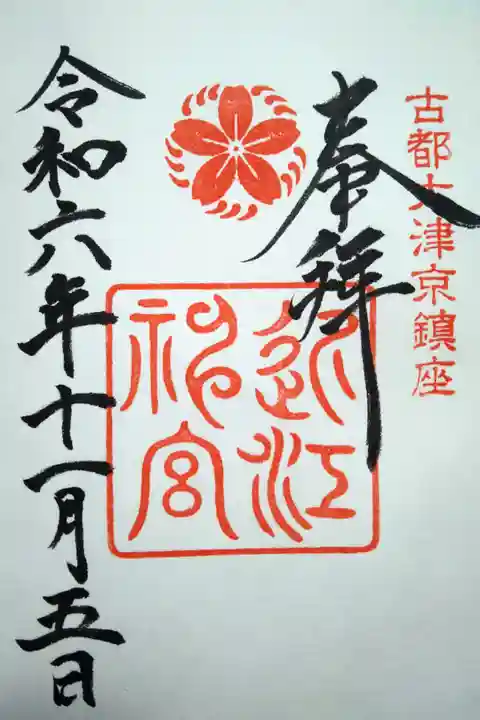 古都大津京鎮座
奉拝
近江
神宮
令和六年十一月五日